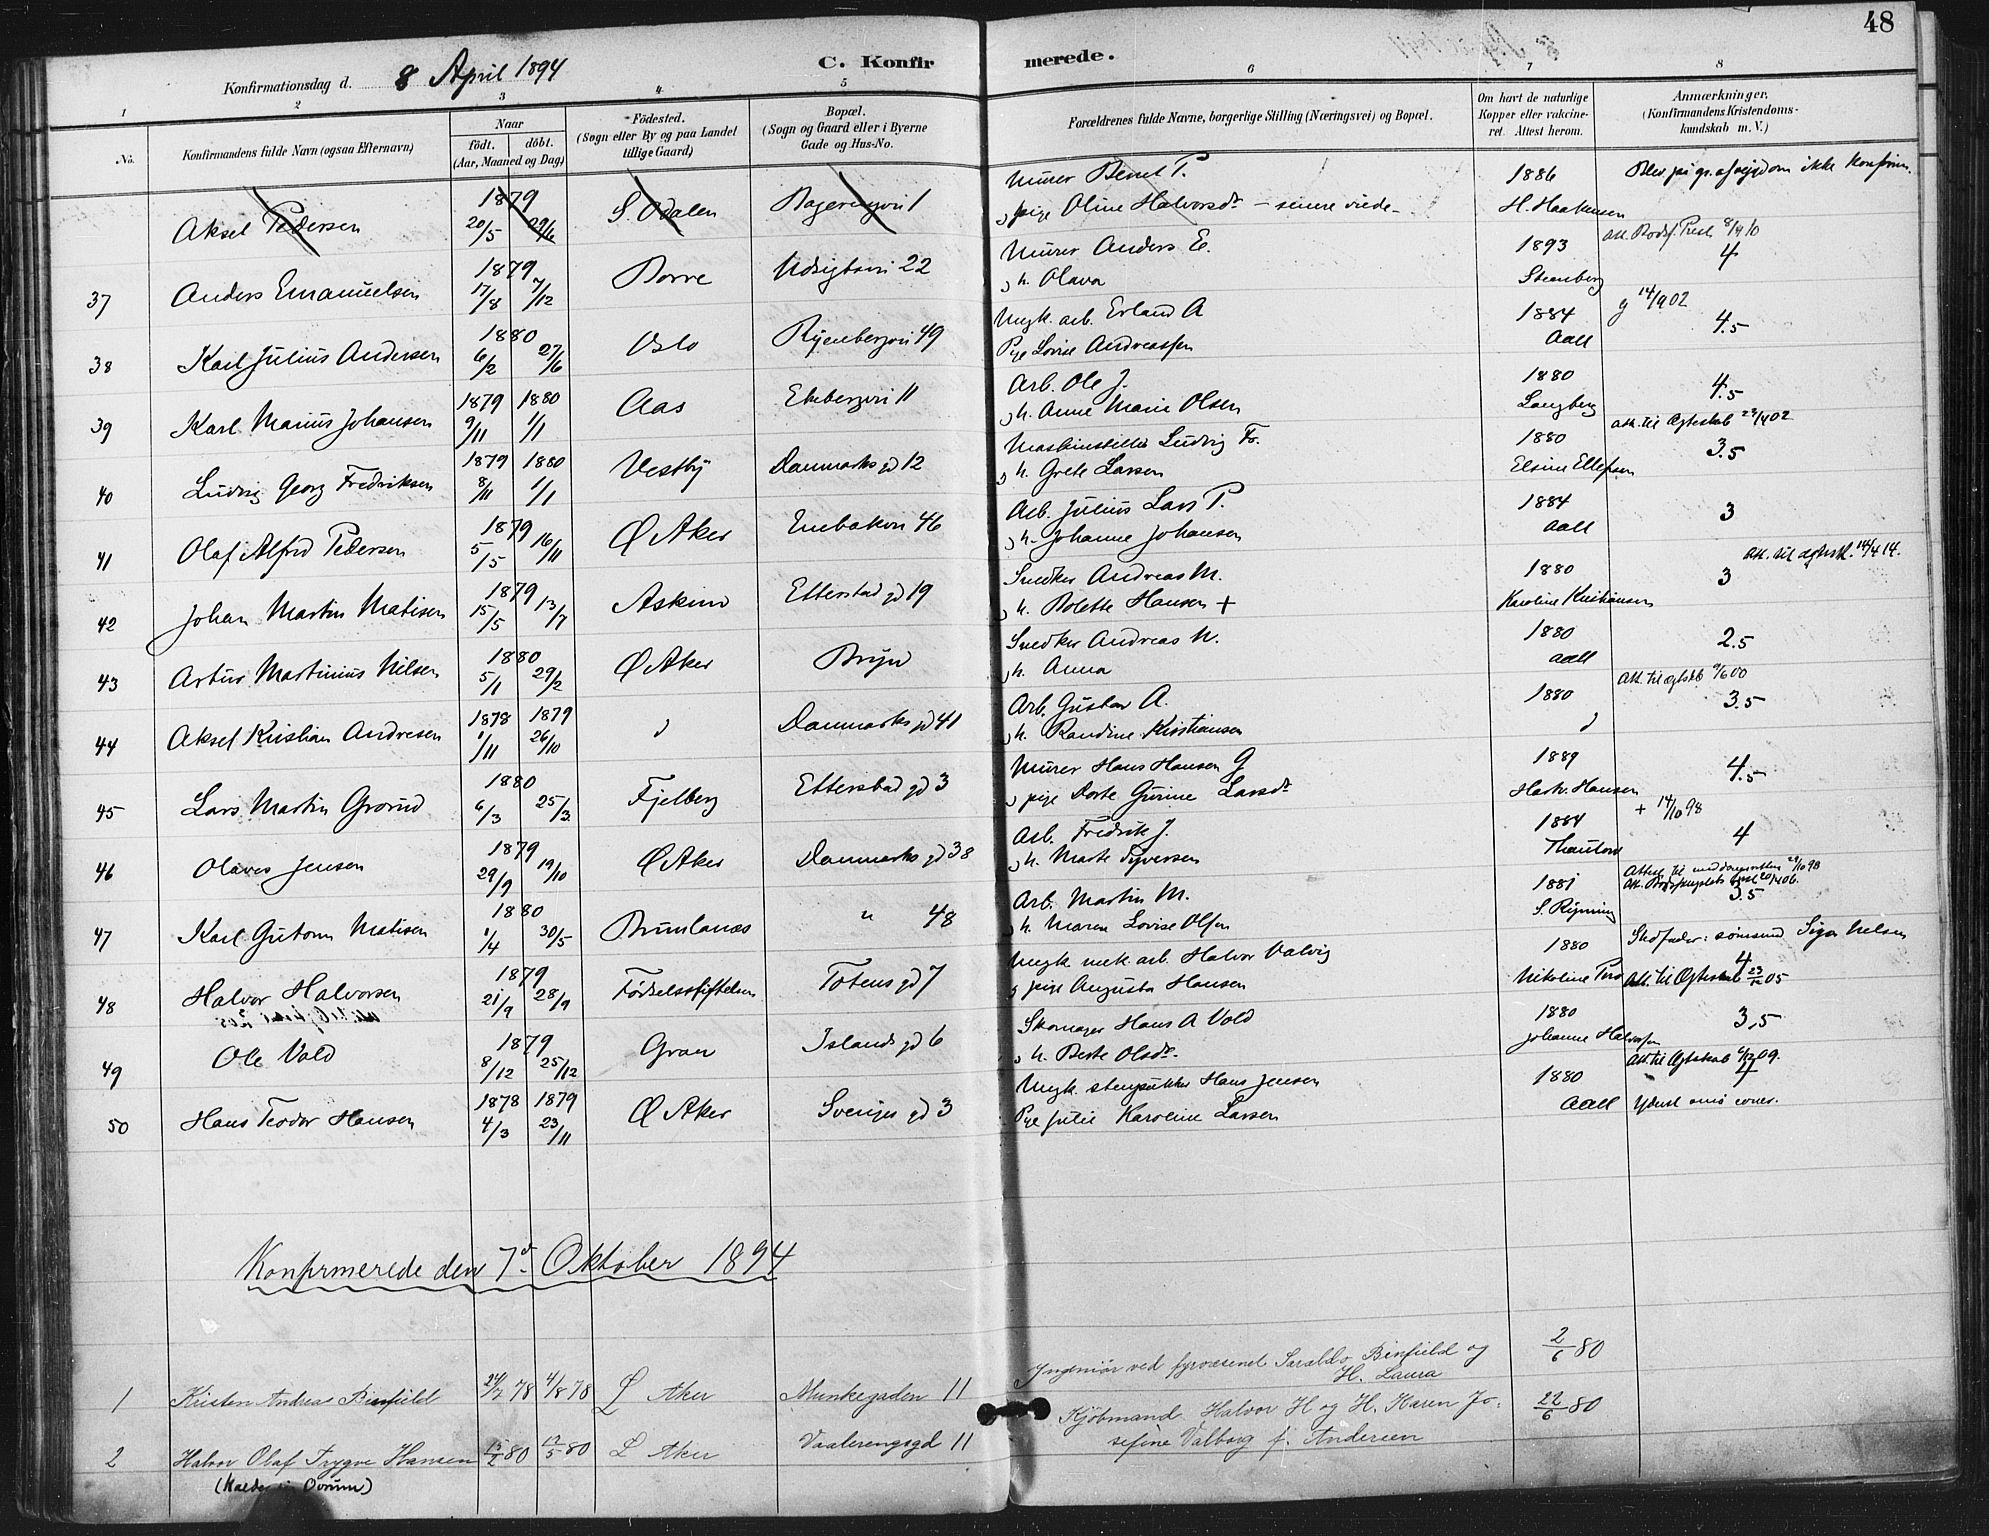 48
Konfirmationsdag d. 8 April 1894
C. Konfirmerede.
1 2 3 4 5 6 7 8
No. Konfirmandens fulde Navn (ogsaa Efternavn) Naar født. døbt. (Aar, Maaned og Dag) Fødested. (Sogn eller By og paa Landet tillige Gaard) Bopæl. (Sogn og Gaard eller i Byerne Gade og Hus-No. Forældrenes fulde Navne, borgerlige Stilling (Næringsvei) og Bopæl. Om havt de naturlige Kopper eller vakcineret. Attest herom. Anmærkninger. (Konfirmandens Kristendomskundskab m. V.)
Aksel Pedersen 1879 20/5 29/6 S. Odalen 1 Murer Bernt P. 1886 Blev på gr. af sygdom ikke konfirm.
pige Oline Halvorsdr - senere viede - H. Haakensen
37 Anders Emanuelsen 1879 17/8 7/12 Borre Udsigtsvei 22 Murer Anders E. 1893 4
h. Olava Steenberg
38 Karl Julius Andersen 1880 6/2 27/6 Oslo Ryenbergvei 49 Ungk. arb. Erland A 1884 g 14/9 02 4.5
Pige Lovise Andreassen Aall
39 Karl Marius Johansen 1879 9/11 1880 1/1 Aas Ekebergvei 11 Arb. Ole J. 1880 4.5
h. Anne Marie Olsen Langberg att. til Ægteskab 23/4 02
40 Ludvig Georg Fredriksen 1879 8/11 1880 1/1 Vestby Danmarks gd 12 Maskinstiller Ludvig Fr. 1880 3.5
h. Grete Larsen Elsine Ellefsen
41 Olaf Alfred Pedersen 1879 5/5 16/11 Ø Aker Enebakvei 46 Arb. Julius Lars P. 1884 3
h. Johanne Johansen Aall
42 Johan Martin Matisen 1879 15/5 13/7 Askim Etterstad gd 19 Snedker Andreas M. 1880 3 att. til ægtesk. 14/4 14.
h. Bolette Hansen + Karoline Kristiansen
43 Artur Martinius Nilsen 1880 5/1 29/2 Ø Aker Bryn Snedker Andreas N. 1880 2.5
h. Anna Aall
44 Aksel Kristian Andresen 1878 1/11 1879 26/10 Danmarks gd 41 Arb. Gustav A. 1880 3.5
h. Randine Kristiansen
45 Lars Martin Grorud 1880 6/3 25/3 Fjelberg Etterstad gd 3 Murer Hans Hansen G 1889 4.5
pige Dorte Gurine Larsdr Hartv. Hansen + 14/10 98
46 Olaves Jensen 1879 29/9 19/10 Ø Aker Danmarks gd 38 Arb. Fredrik J. 1884 4
h. Marte Syversen Thaulow
47 Karl Gutorm Matisen 1880 1/4 30/5 Brunlanæs " 48 Arb. Martin M. 1881 3.5
h. Maren Lovise Olsen S. Rynning
48 Halvor Halvorsen 1879 21/9 28/9 Fødselsstiftelsen Totens gd 7 Ungk mek. arb. Halvor Valvig 1880 4
pige Augusta Hansen Att. til Ægteskab 23/12 05
49 Ole Vold 1879 8/12 25/12 Gran Islands gd 6 Skomager Hans A Vold 1880 3,5
h. Berte Olsdr. Johanne Halvorsen
50 Hans Teodor Hansen 1878 4/3 1879 23/11 Ø Aker Sveriges gd 3 Ungk. Hans Jensen 1880
Pige Julie Karoline Larsen Aall
Konfirmerede den 7d Oktober 1894
1 Kristen Andreas Binfield 24/7 78 4/8 78 Aker Munkegaden 11 Ingeniør ved fyrvæsenet Binfield og 2/6 80
H. Laura
2 Halvor Olaf Trygve Hansen 80 80 Aker Vaalerengsgd 11 Kjøbmand Halvor H og H. Karen Jo- 22/6 80
sefine Valborg f. Andersen